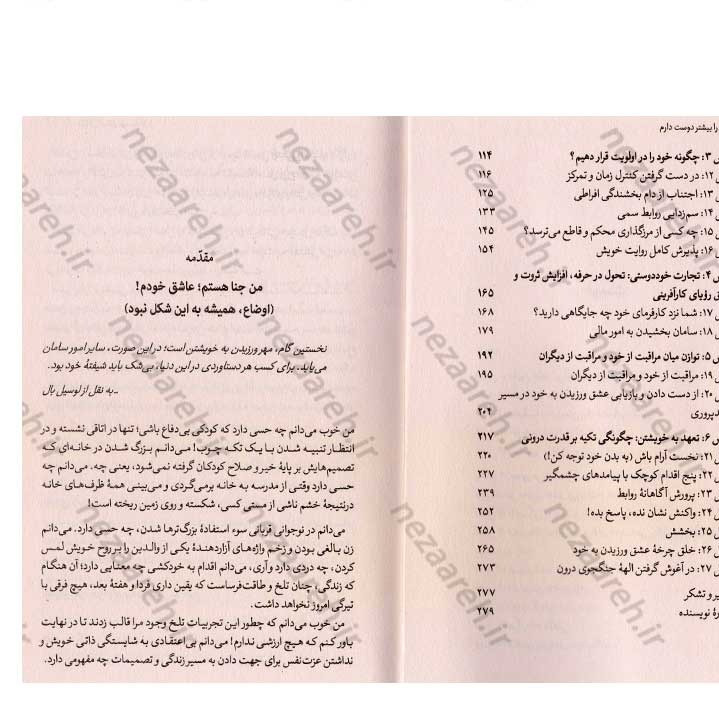 را بیشتر دوست دارم
۳: چگونه خود را در اولویت قرار دهیم؟ ۱۱۴
۱۲: در دست گرفتن کنترل زمان و تمرکز ۱۱۶
۱۳: اجتناب از دام بخشندگی افراطی ۱۲۵
۱۴: سم‌زدایی روابط سمی ۱۳۳
۱۵: چه کسی از مرزگذاری محکم و قاطع می‌ترسد؟ ۱۴۵
۱۶: پذیرش کامل روایت خویش ۱۵۴
۴: تجارت خوددوستی: تحول در حرفه، افزایش ثروت و
رؤیای کارآفرینی ۱۶۵
۱۷: شما نزد کارفرمای خود چه جایگاهی دارید؟ ۱۶۸
۱۸: سامان بخشیدن به امور مالی ۱۷۹
۵: توازن میان مراقبت از خود و مراقبت از دیگران ۱۹۲
۱۹: مراقبت از خود و مراقبت از دیگران ۱۹۵
۲۰: از دست دادن و بازیابی عشق ورزیدن به خود در مسیر
پروری ۲۰۴
۶: تعهد به خویشتن: چگونگی تکیه بر قدرت درونی ۲۱۷
۲۱: نخست آرام باش (به بدن خود توجه کن!) ۲۲۰
۲۲: پنج اقدام کوچک با پیامدهای چشمگیر ۲۲۷
۲۳: پرورش آگاهانهٔ روابط ۲۳۹
۲۴: واکنش نشان نده، پاسخ بده! ۲۵۲
۲۵: بخشش ۲۵۸
۲۶: خلق چرخهٔ عشق ورزیدن به خود ۲۶۵
۲۷: در آغوش گرفتن الههٔ جنگجوی درون ۲۷۳
و تشکر ۲۷۷
نویسنده ۲۷۹
مقدّمه
من جنا هستم؛ عاشق خودم!
(اوضاع، همیشه به این شکل نبود)
نخستین گام، مهر ورزیدن به خویشتن است؛ در این صورت، سایر امور سامان
می‌یابد. برای کسب هر دستاوردی در این دنیا، بی‌شک باید شیفتهٔ خود بود.
ـ به نقل از لوسیل بال
من خوب می‌دانم چه حسی دارد که کودکی بی‌دفاع باشی؛ تنها در اتاقی نشسته و در
انتظار تنبیه شدن با یک تکه چوب! می‌دانم بزرگ شدن در خانه‌ای که
تصمیم‌هایش بر پایهٔ خیر و صلاح کودکان گرفته نمی‌شود، یعنی چه. می‌دانم چه
حسی دارد وقتی از مدرسه به خانه برمی‌گردی و می‌بینی همهٔ ظرف‌های خانه
درنتیجهٔ خشم ناشی از مستی کسی، شکسته و روی زمین ریخته است!
می‌دانم در نوجوانی قربانی سوء استفادهٔ بزرگ‌ترها شدن، چه حسی دارد. می‌دانم
زن بالغی بودن و زخم واژه‌های آزاردهندهٔ یکی از والدین را بر روح خویش لمس
کردن، چه دردی دارد و آری، می‌دانم اقدام به خودکشی چه معنایی دارد؛ آن هنگام
که زندگی، چنان تلخ و طاقت‌فرساست که یقین داری فردا و هفتهٔ بعد، هیچ فرقی با
تیرگی امروز نخواهد داشت.
من خوب می‌دانم که چطور این تجربیات تلخ وجود مرا قالب زدند تا در نهایت
باور کنم که هیچ ارزشی ندارم! می‌دانم بی‌اعتقادی به شایستگی ذاتی خویش و
نداشتن عزت‌نفس برای جهت دادن به مسیر زندگی و تصمیمات چه مفهومی دارد.
nezaareh.ir